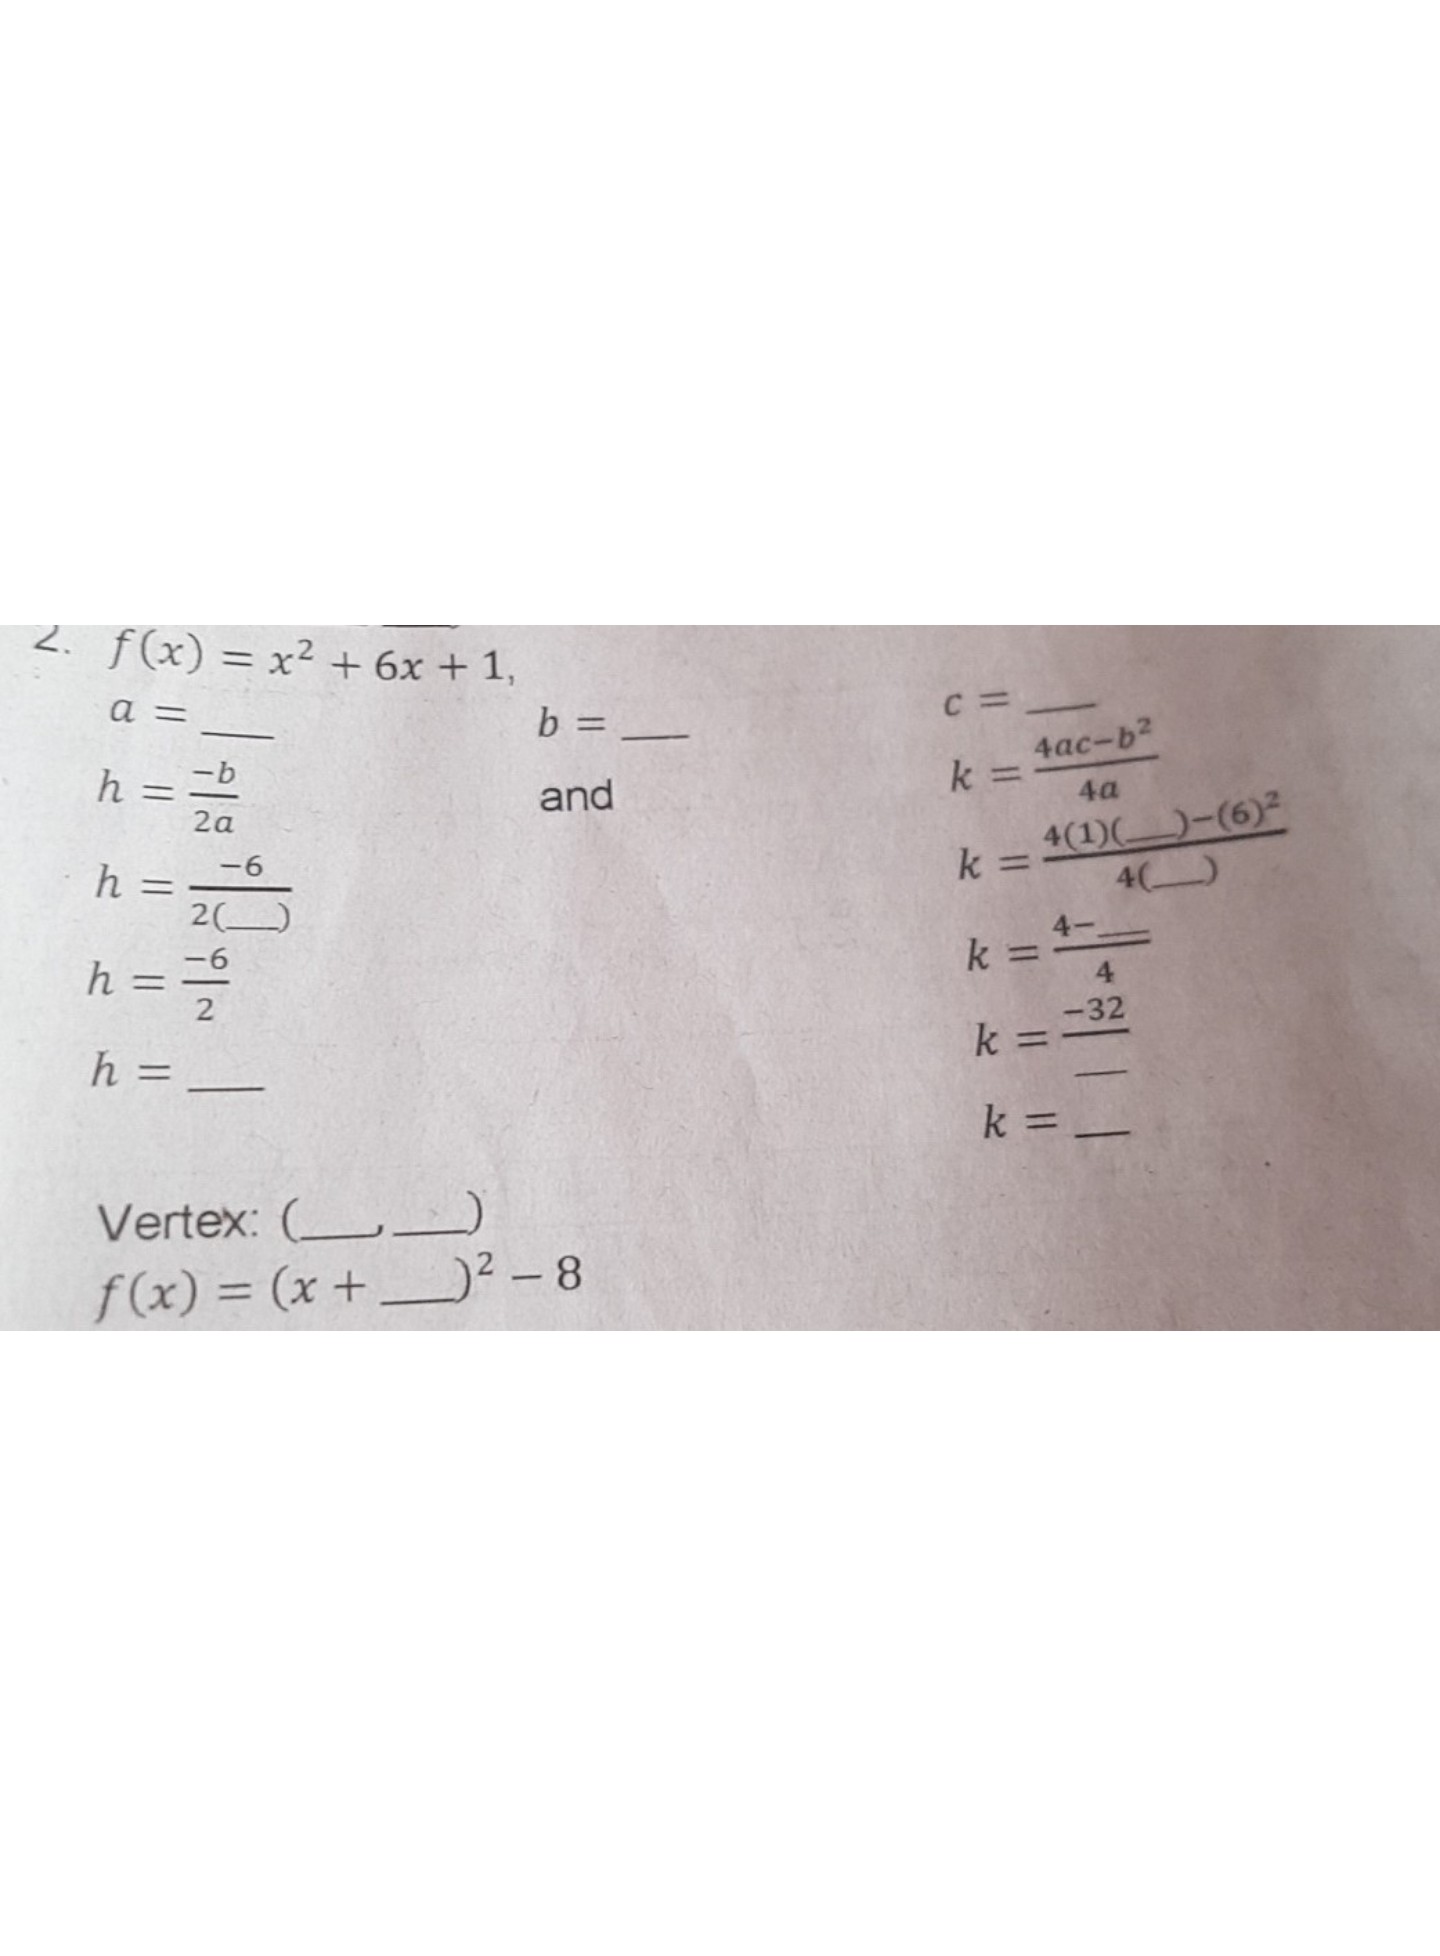 2. f(x) = x² + 6x + 1,
a = ___ b = ___ c = ___
h = −b/2a and k = 4ac−b²/4a
h = −6/2(___) k = 4(1)(___)−(6)²/4(___)
h = −6/2 k = 4−___/4
h = ___ k = −32/___
k = ___
Vertex: (___,___)
f(x) = (x + ___)² − 8